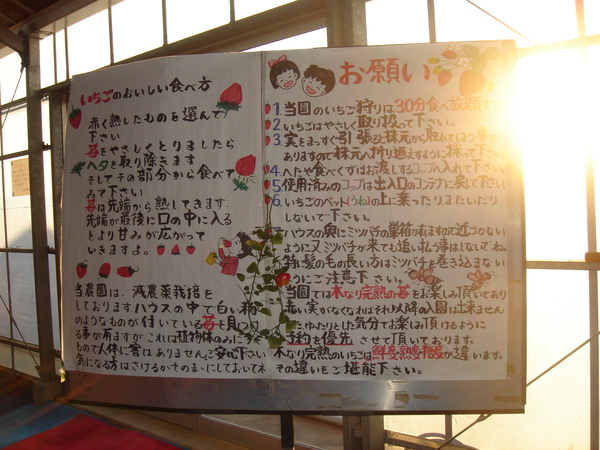 いちごのおいしい食べ方
赤く熟したものを選んで
下さい
苺をやさしくとりましたら
ヘタを取り除きます
そしてその部分から食べて
みて下さい
苺は先端から熟してきます。
先端が最後に口の中に入る
とより甘みが広がって
いきますよ。
当農園は、減農薬栽培を
しておりますハウスの中で白い粉
のようなものが付いている苺を見つけ
る事が有りますがこれは植物体のみに
もので人体に害はありませんご安心下さい
気になる方はさけるかそのままにしておいてネ
お願い
1.当園のいちご狩りは30分食べ放題です
2.いちごはやさしく取り扱って下さい。
3.実をまっすぐ引っ張ると株元から取れてしまう事が
ありますので株元へ折り返すように採って下さい
4.へたや食べくずはお渡しするコップへ入れて下さい
5.使用済みのコップは出入口のコンテナに戻して下さい
6.いちごのベット(うね)の上に乗ったりまたいだり
しないで下さい。
ハウスの奥にミツバチの巣箱が有ますので近づかない
ように又ミツバチが来ても追い払う事はしないでね。
特に髪の毛の長い方はミツバチを巻き込まない
ようにご注意下さい。
当園では木なり完熟の苺をお楽しみ頂いており
赤い実がなくなればそれ以降の入園は出来ません
ゆったりとした気分でお楽しみ頂けるように
予約を優先させて頂いております。
木なり完熟のいちごは鮮度、熟度、糖度が違います。
その違いをご堪能下さい。